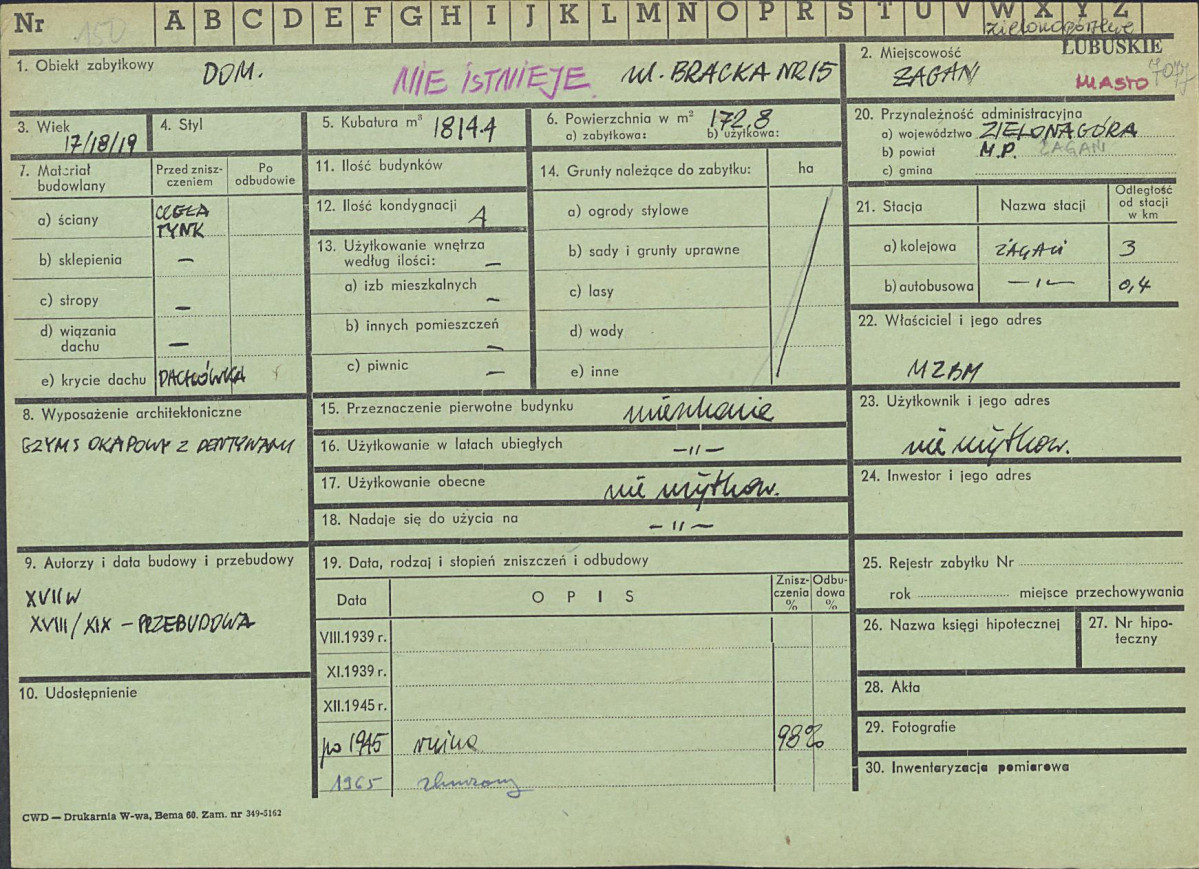 Nr 150 A B C D E F G H I J K L M N O P R S T U V W X Y Z
zielonogórskie
LUBUSKIE
1. Obiekt zabytkowy DOM. NIE ISTNIEJE. ul. BRACKA NR 15
2. Miejscowość
ŻAGAŃ MIASTO 7077
3. Wiek
17/18/19
4. Styl
5. Kubatura m³ 1814.4
6. Powierzchnia w m² 172,8
a) zabytkowa: b) użytkowa:
20. Przynależność administracyjna
a) województwo ZIELONA GÓRA
b) powiat M.P. ŻAGAŃ
c) gmina
7. Materiał budowlany
Przed zniszczeniem
Po odbudowie
a) ściany CEGŁA
TYNK
b) sklepienia –
c) stropy –
d) wiązania dachu –
e) krycie dachu DACHÓWKA
11. Ilość budynków
12. Ilość kondygnacji 1
13. Użytkowanie wnętrza
według ilości: –
a) izb mieszkalnych –
b) innych pomieszczeń –
c) piwnic –
14. Grunty należące do zabytku: ha
a) ogrody stylowe
b) sady i grunty uprawne
c) lasy
d) wody
e) inne
21. Stacja Nazwa stacji Odległość od stacji w km
a) kolejowa ŻAGAŃ 3
b) autobusowa –"– 0,4
22. Właściciel i jego adres
MZBM
8. Wyposażenie architektoniczne
GZYMS OKAPOWY Z DENTYKAMI
15. Przeznaczenie pierwotne budynku mieszkanie
16. Użytkowanie w latach ubiegłych –"–
17. Użytkowanie obecne nie użytkow.
18. Nadaje się do użycia na –"–
23. Użytkownik i jego adres
nie użytkow.
24. Inwestor i jego adres
9. Autorzy i data budowy i przebudowy
XVII w
XVIII/XIX – PRZEBUDOWA
10. Udostępnienie
19. Data, rodzaj i stopień zniszczeń i odbudowy
Data OPIS Zniszczenia % Odbudowa %
VIII.1939 r.
XI.1939 r.
XII.1945 r.
po 1945 ruina 98%
1965 zburzony
25. Rejestr zabytku Nr
rok miejsce przechowywania
26. Nazwa księgi hipotecznej
27. Nr hipoteczny
28. Akta
29. Fotografie
30. Inwentaryzacja pomiarowa
CWD — Drukarnia W-wa, Bema 60. Zam. nr 349-5162